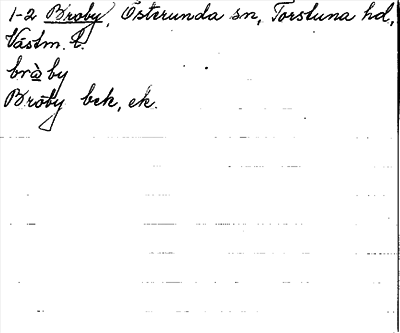 1-2 Broby, Österunda sn, Torstuna hd,
Västm. l.
bròby
Broby bck, ek.